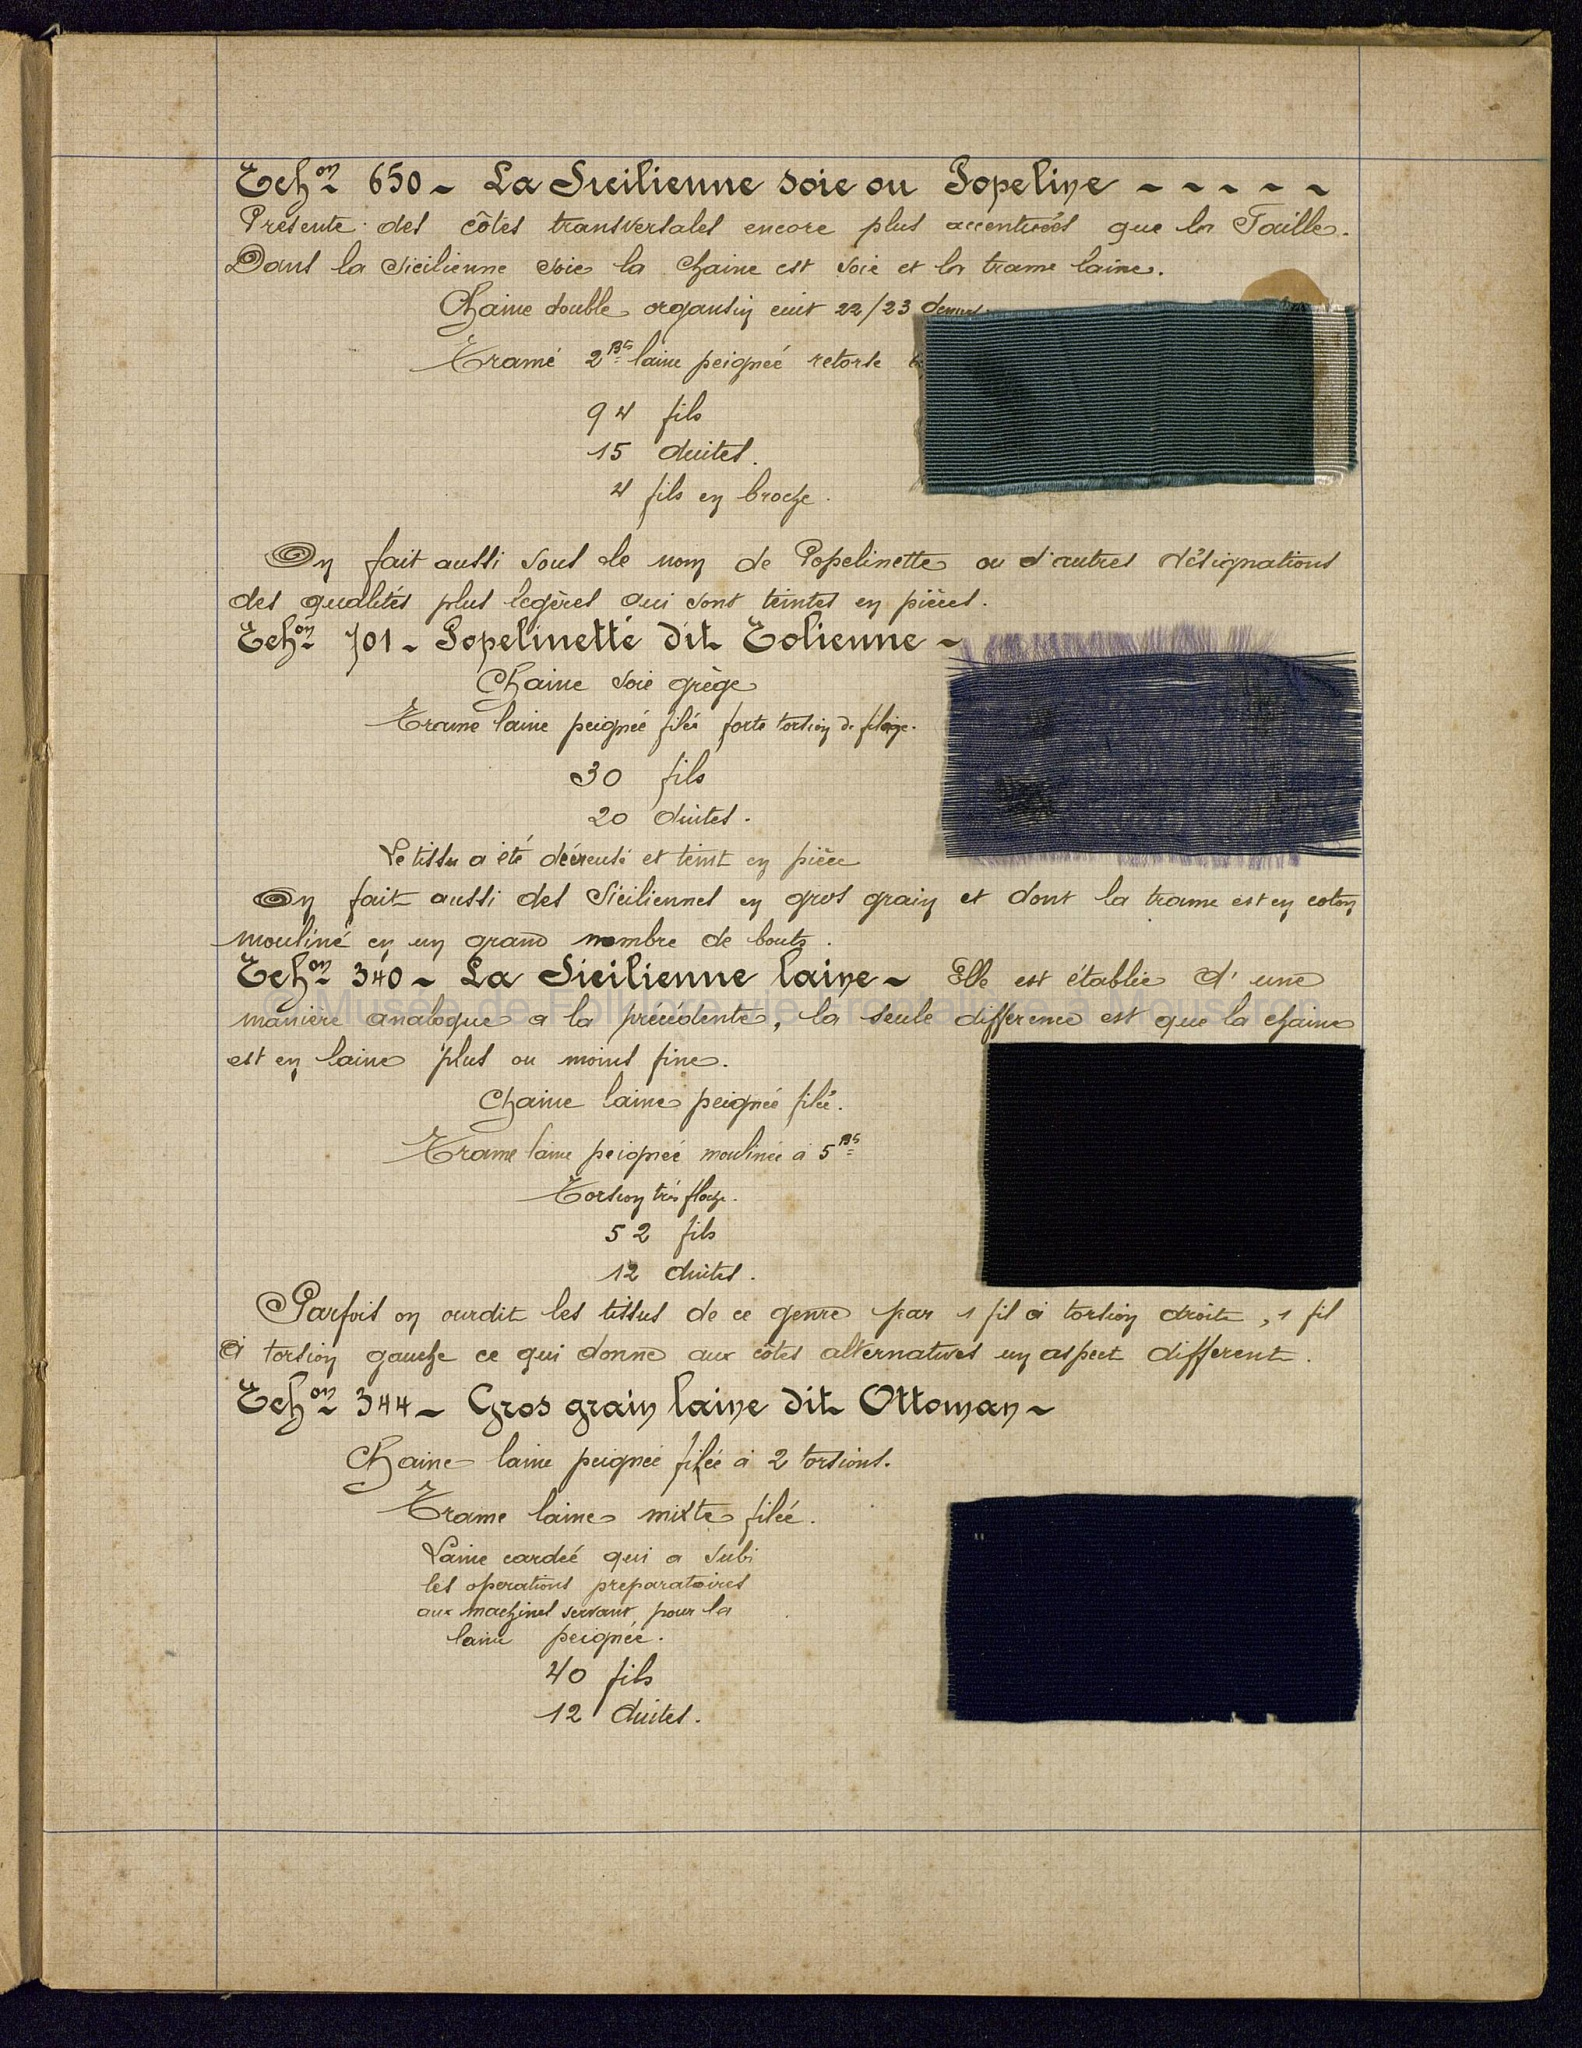 Echon 650 - La Sicilienne soie ou Popeline - - - - -
Présente des côtes transversales encore plus accentuées que la Faille.
Dans la Sicilienne soie la chaine est soie et la trame laine.
Chaine double organsin cuit 22/23
Tramé 2 Bts laine peignée retorse
94 fils
15 duites.
4 fils en broche.
On fait aussi sous le nom de Popelinette ou d'autres désignations
des qualités plus legères qui sont teintes en pièces.
Echon 701 - Popelinette dit Eolienne -
Chaine soie grège
Trame laine peignée filée forte torsion de filage.
30 fils
20 duites.
Le tissu a été décreusé et teint en pièce
On fait aussi des Siciliennes en gros grain et dont la trame est en coton
mouliné en un grand nombre de bouts.
Echon 340 - La Sicilienne laine - Elle est établie d'une
© Musée de Folklore vie Frontalière à Mouscron
manière analogue a la précédente, la seule différence est que la chaine
est en laine plus ou moins fine.
Chaine laine peignée filée.
Trame laine peignée moulinée à 5 Bts
Torsion très floche.
52 fils
12 duites.
Parfois on ourdit les tissus de ce genre par 1 fil à torsion droite, 1 fil
à torsion gauche ce qui donne aux côtes alternatives un aspect different.
Echon 344 - Gros grain laine dit Ottoman -
Chaine laine peignée filée à 2 torsions.
Trame laine mixte filée.
Laine cardée qui a subi
les operations preparatoires
aux machines servant pour la
laine peignée.
40 fils
12 duites.